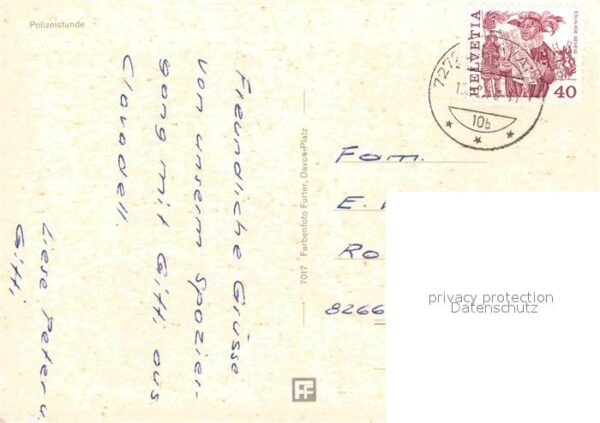 Polizeistunde
Freundliche Grüsse
von unserm Spazier-
gang mit Gitti aus
Clavadell.
Liese Peter u.
Gitti
7017 Farbenfoto Furter, Davos-Platz
HELVETIA
ESCALADE GENÈVE
40
7272
10b
Fam.
E.
Ro
8266
privacy protection
Datenschutz